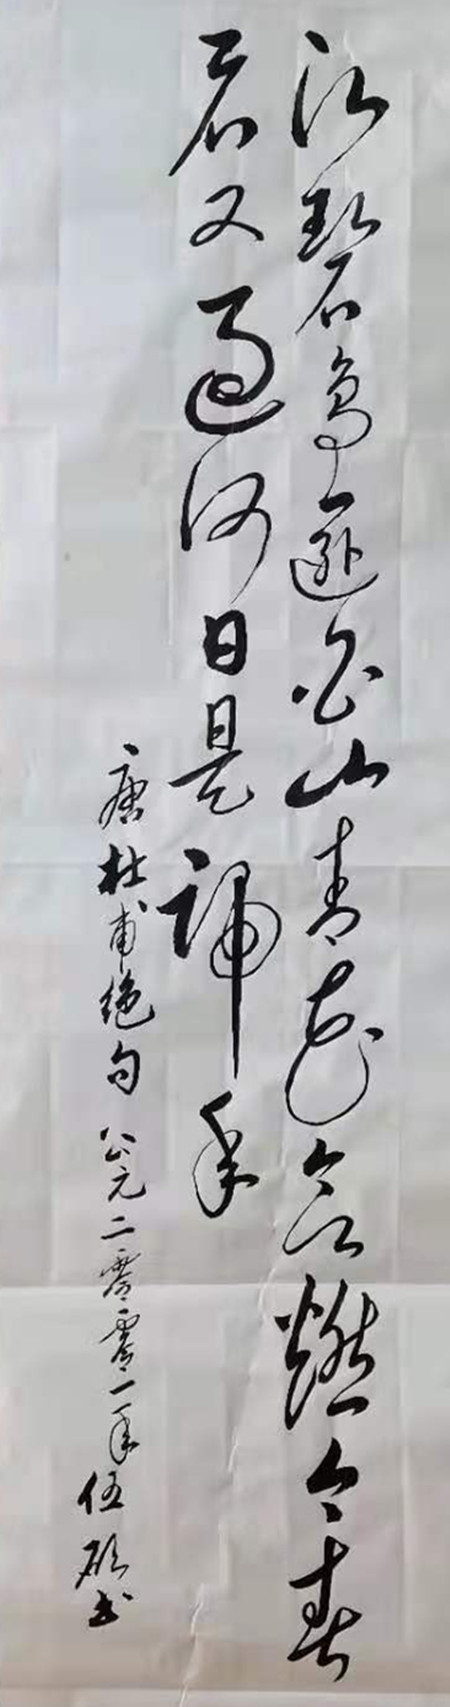 江碧鳥逾白山青花欲燃今春
看又過何日是歸年
唐杜甫絶句 公元二零零一年 伍书